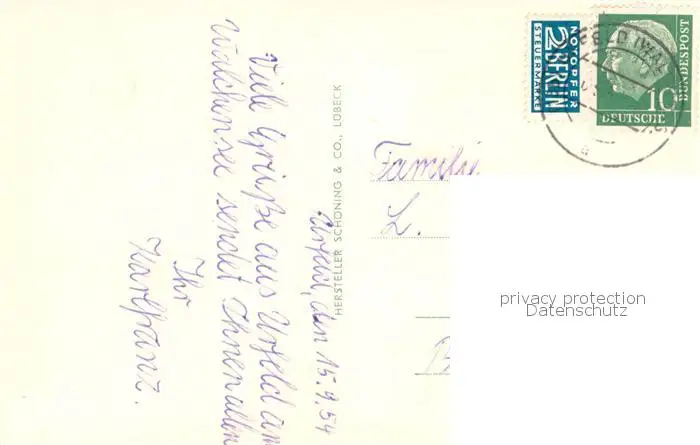 Urfeld, den 15.9.54
Viele Grüße aus Urfeld am
Walchensee sendet Ihnen allen
Ihr
Karlfranz.
HERSTELLER SCHÖNING & CO., LÜBECK
Familie
L.
B
NOTOPFER
2 BERLIN
STEUERMARKE
DEUTSCHE
BUNDESPOST
10
privacy protection
Datenschutz